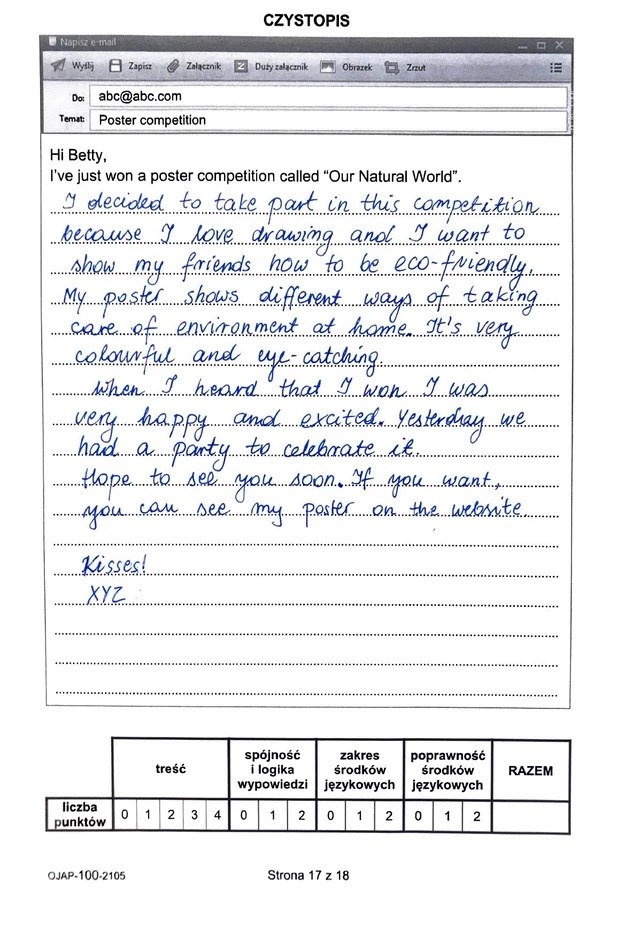 CZYSTOPIS
Napisz e-mail
Wyślij Zapisz Załącznik Duży załącznik Obrazek Zrzut
Do: abc@abc.com
Temat: Poster competition
Hi Betty,
I've just won a poster competition called “Our Natural World”.
I decided to take part in this competition
because I love drawing and I want to
show my friends how to be eco-friendly.
My poster shows different ways of taking
care of environment at home. It's very
colourful and eye-catching.
When I heard that I won I was
very happy and excited. Yesterday we
had a party to celebrate it.
Hope to see you soon. If you want,
you can see my poster on the website
Kisses!
XYZ
treść
spójność i logika wypowiedzi
zakres środków językowych
poprawność środków językowych
RAZEM
liczba punktów
0 1 2 3 4 0 1 2 0 1 2 0 1 2
OJAP-100-2105 Strona 17 z 18